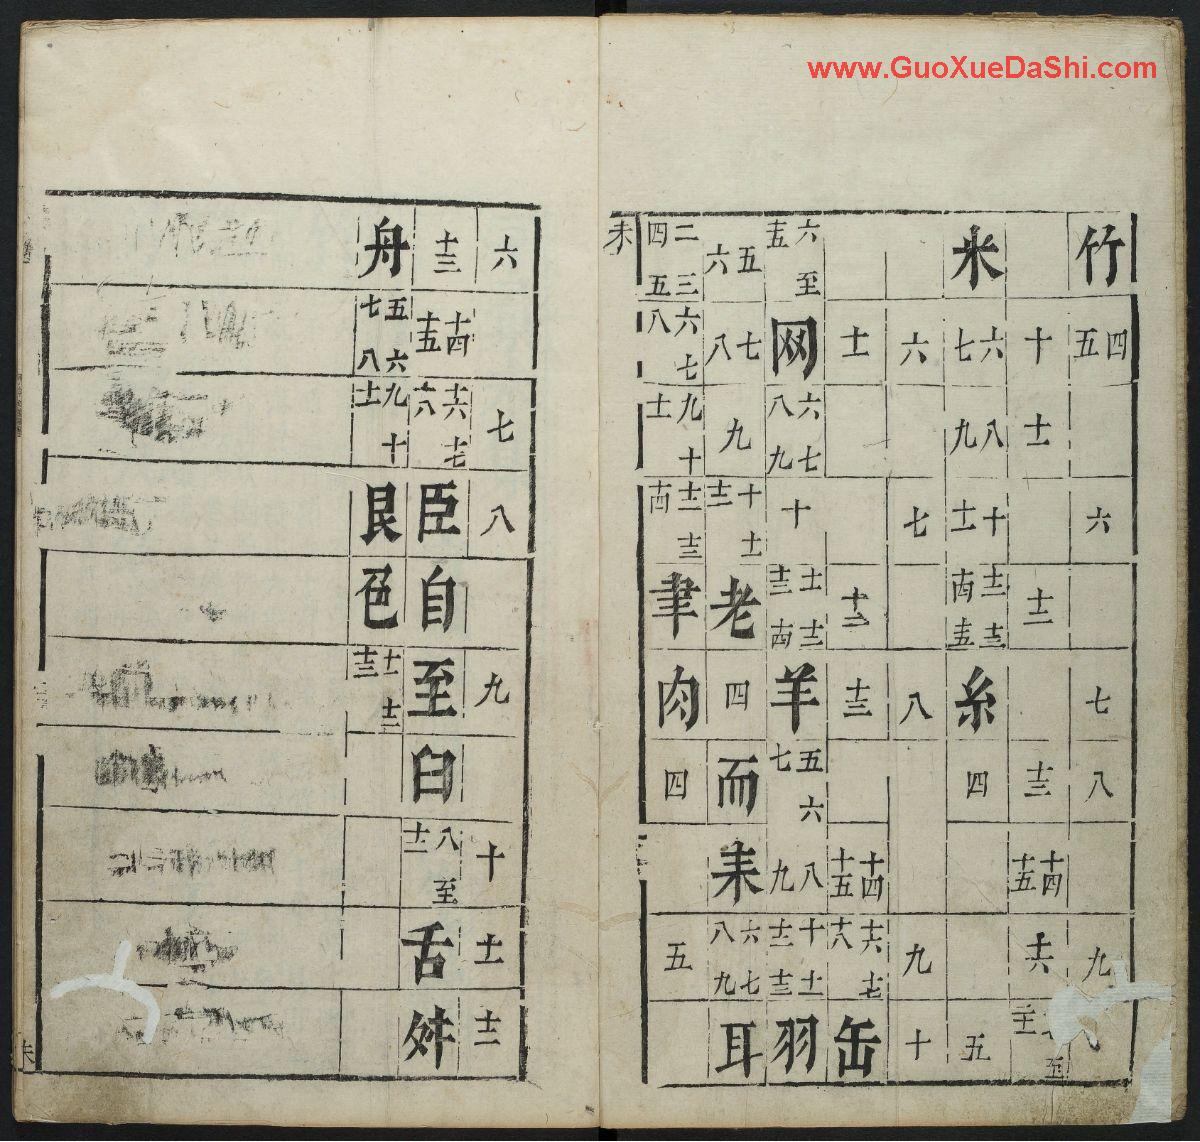 www.GuoXueDaShi.com
竹四五六七八九
十十一十二十三十四十五十六
米六七八九十十一十二十三十四十五糸四五
六七八九十
十一十二十三十四十五十六十七十八缶
六至十五网六七八九十十一十二十三十四羊五六七八九十十一十二十三羽
五六七八九十十一十二老四而耒六七八九耳
二三四五六七八九十十一十二十三十四聿肉四五
未
六七八九十十一十二
十三十四十五十六十七十八臣自至臼八至十一舌舛
舟五六七八九十十一艮色十一十二十三